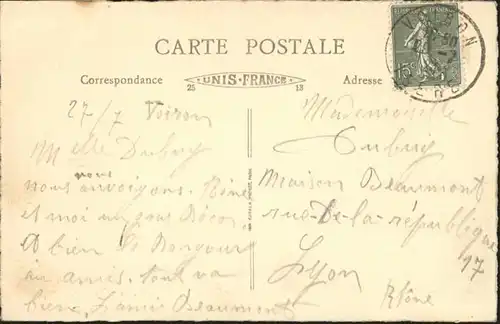 CARTE POSTALE
Correspondance
UNIS-FRANCE
25 13
Adresse
VOIRON
15c
27/7 Voiron
Melle Dubuy
nous
vous envoyons René
et moi un gros
A bien le Bonjour
au amis. tout va
bien. L'amie Beaumont
Mademoiselle
Dubuy
Maison Beaumont
rue-De-la-république
17
Lyon
Rhône